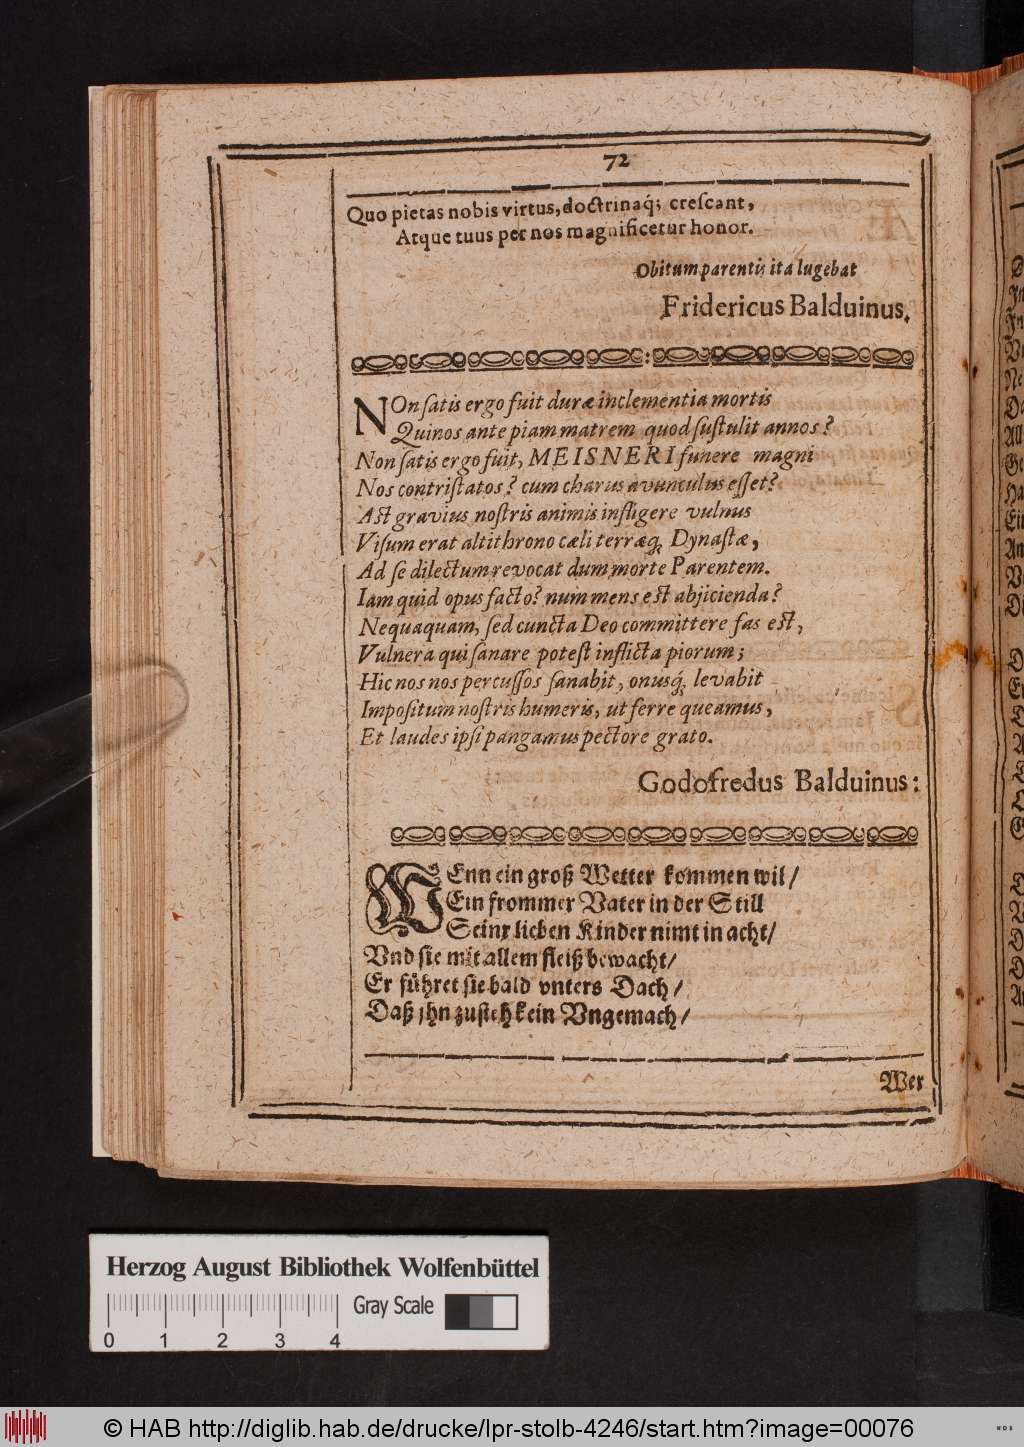 72
Quo pietas nobis virtus, doctrinaq́; creſcant,
Atque tuus per nos magnificetur honor.
Obitum parentis ita lugebat
Fridericus Balduinus.
NOn ſatis ergo fuit duræ inclementia mortis
Quinos ante piam matrem quod ſuſtulit annos?
Non ſatis ergo fuit, MEISNERI funere magni
Nos contriſtatos? cum charus avunculus eſſet?
Aſt gravius noſtris animis infligere vulnus
Viſum erat altithrono cæli terræq́ Dynaſtæ,
Ad ſe dilectum revocat dum morte Parentem.
Iam quid opus facto? num mens eſt abjicienda?
Nequaquam, ſed cuncta Deo committere fas eſt,
Vulnera qui ſanare poteſt inflicta piorum;
Hic nos nos percuſſos ſanabit, onusq́ levabit
Impoſitum noſtris humeris, ut ferre queamus,
Et laudes ipſi pangamus pectore grato.
Godofredus Balduinus:
WEnn ein groß Wetter kommen wil/
Ein frommer Vater in der Still
Seine lieben Kinder nimt in acht/
Vnd ſie mit allem fleiß bewacht/
Er führet ſie bald vnters Dach/
Daß jhn zuſteh kein Vngemach/
Wer
Herzog August Bibliothek Wolfenbüttel
Gray Scale
0 1 2 3 4
© HAB http://diglib.hab.de/drucke/lpr-stolb-4246/start.htm?image=00076